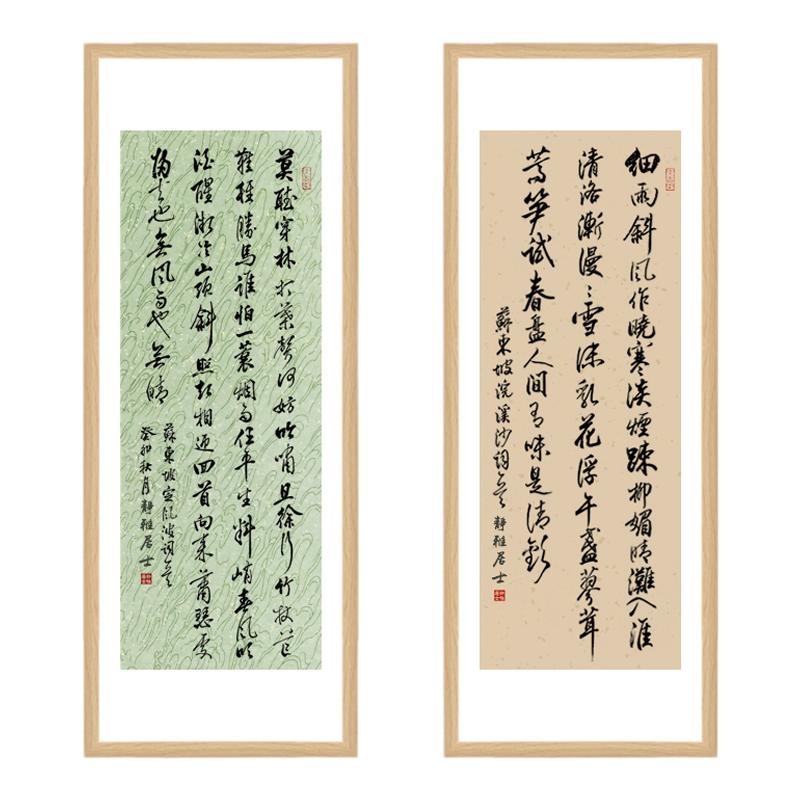 莫聽穿林打葉聲何妨吟嘯且徐行竹杖芒
鞋輕勝馬誰怕一蓑烟雨任平生料峭春風吹
酒醒微冷山頭斜照却相迎回首向來蕭瑟處
歸去也無風雨也無晴
蘇東坡定風波詞意
癸卯秋月靜雅居士
細雨斜風作曉寒淡煙疎柳媚晴灘入淮
清洛漸漫〻雪沫乳花浮午盞蓼茸
蒿筍試春盤人間有味是清歡
蘇東坡浣溪沙詞意靜雅居士